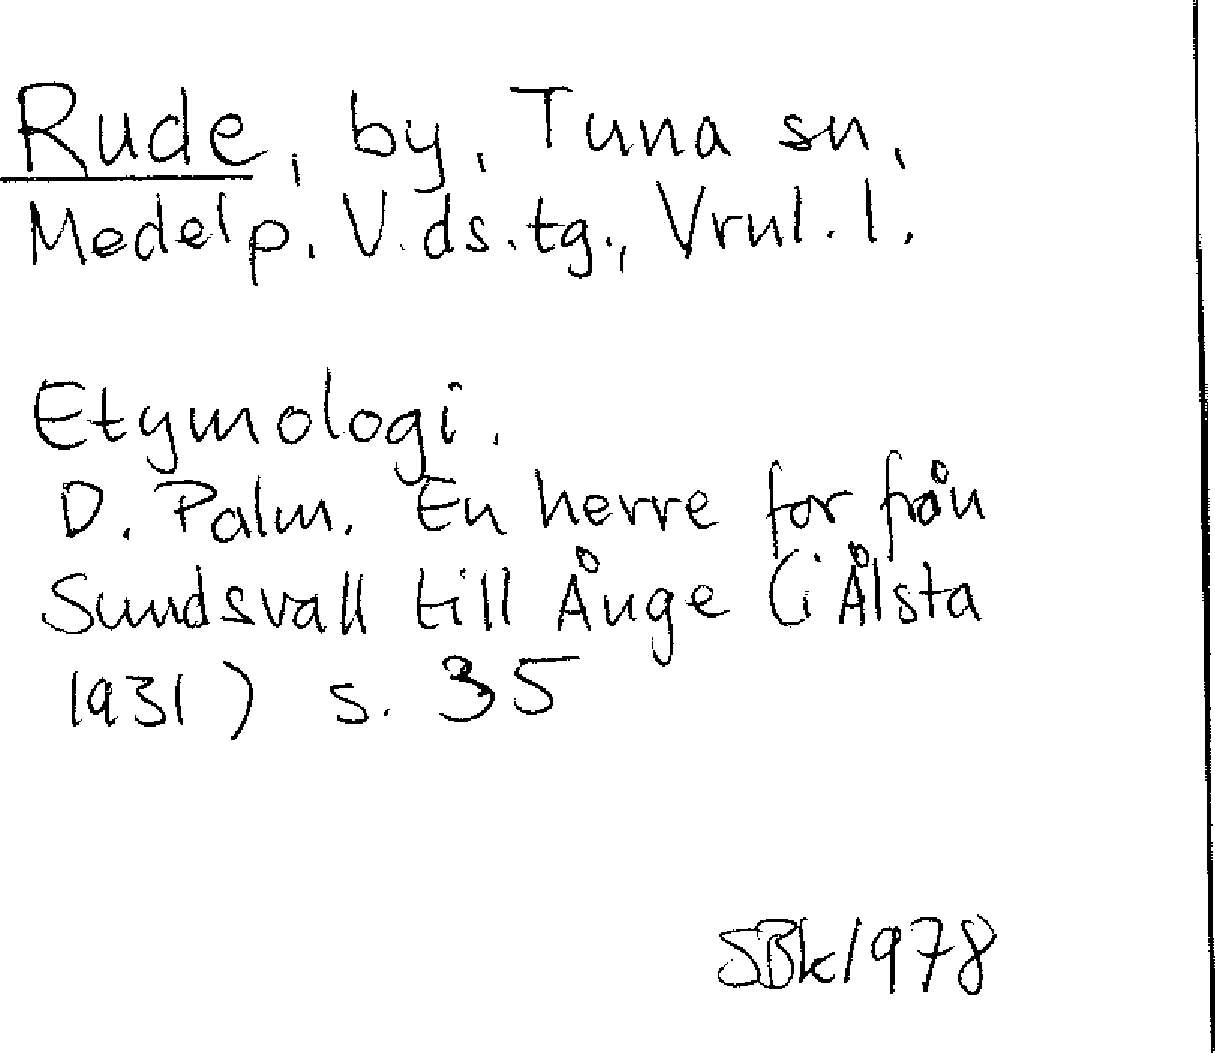 Rude, by, Tuna sn,
Medelp. V.ds.tg., Vrnl. l.
Etymologi.
D. Palm. En herre for från
Sundsvall till Ånge (i Ålsta
1931) s. 35
SBk 1978